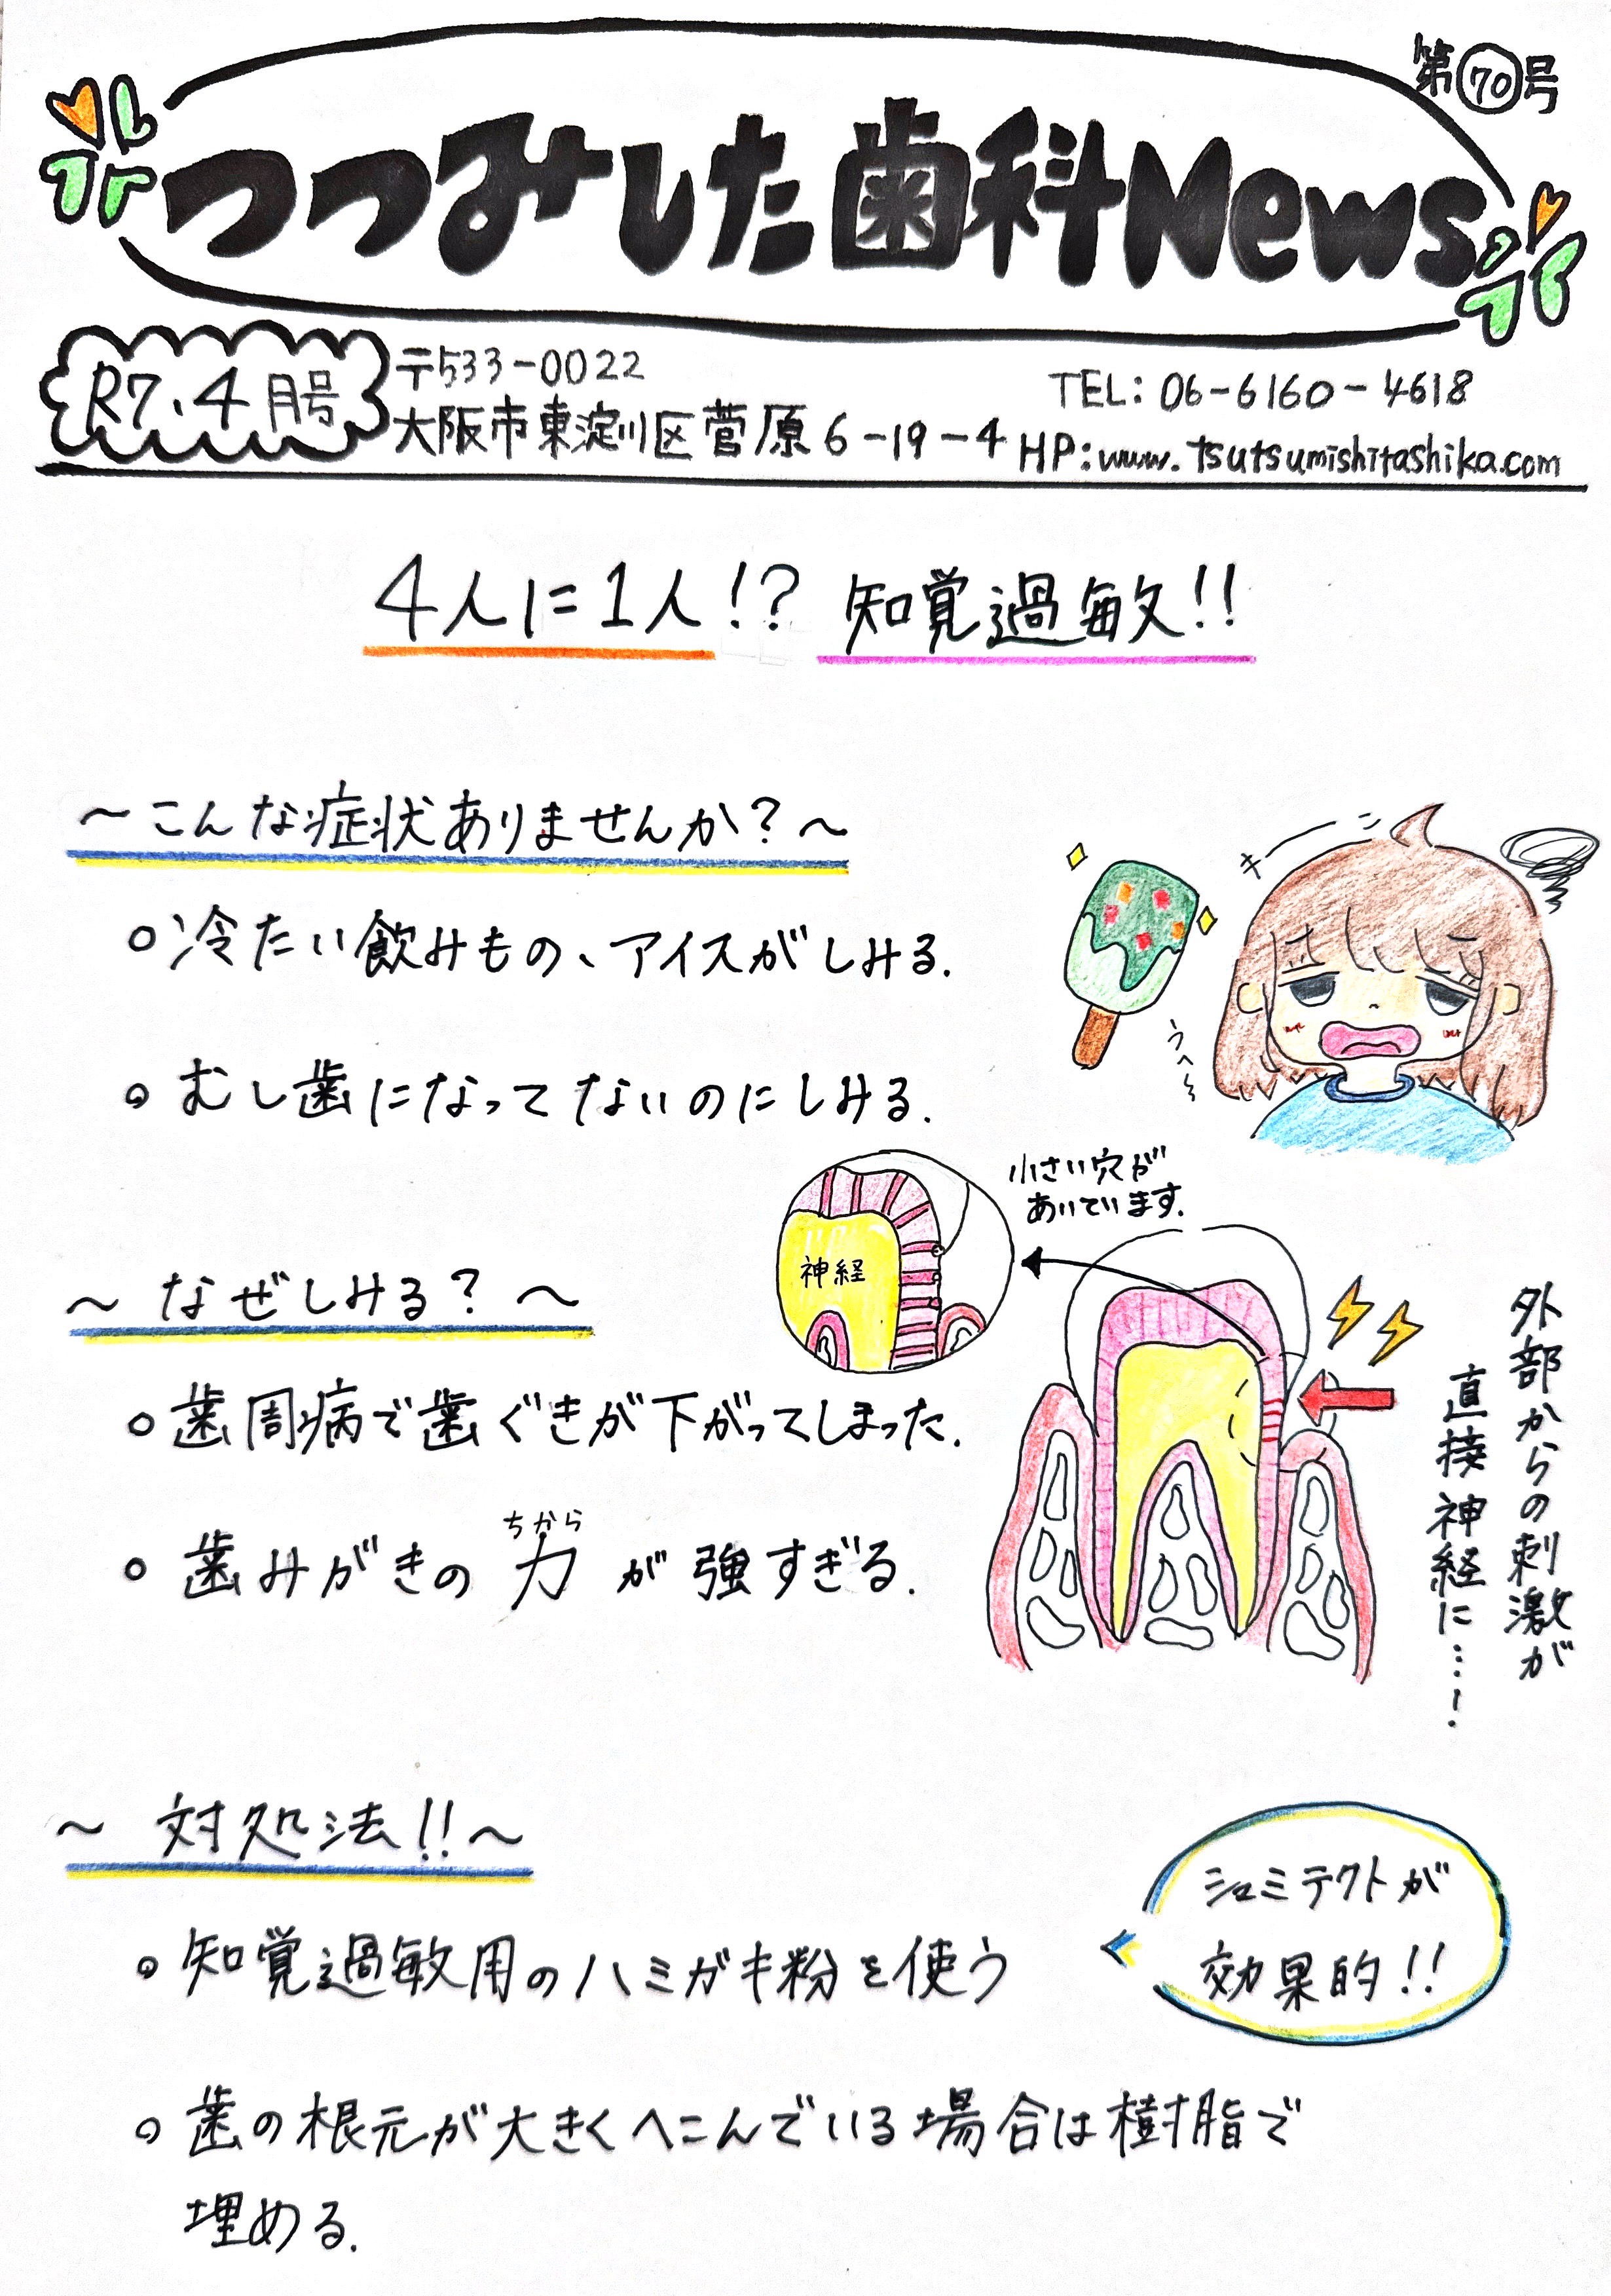 第70号
つつみした歯科News
R7、4月号
〒533-0022
大阪市東淀川区菅原6-19-4
TEL: 06-6160-4618
HP: www.tsutsumishitashika.com
4人に1人!? 知覚過敏!!
～こんな症状ありませんか?～
○冷たい飲みもの、アイスがしみる.
○むし歯になってないのにしみる.
キーン
うへ～
～なぜしみる?～
○歯周病で歯ぐきが下がってしまった.
ちから
○歯みがきの力が強すぎる.
小さい穴が
あいています.
神経
外部からの刺激が
直接神経に……!
～対処法!!～
○知覚過敏用のハミガキ粉を使う
シュミテクトが
効果的!!
○歯の根元が大きくへこんでいる場合は樹脂で
埋める.